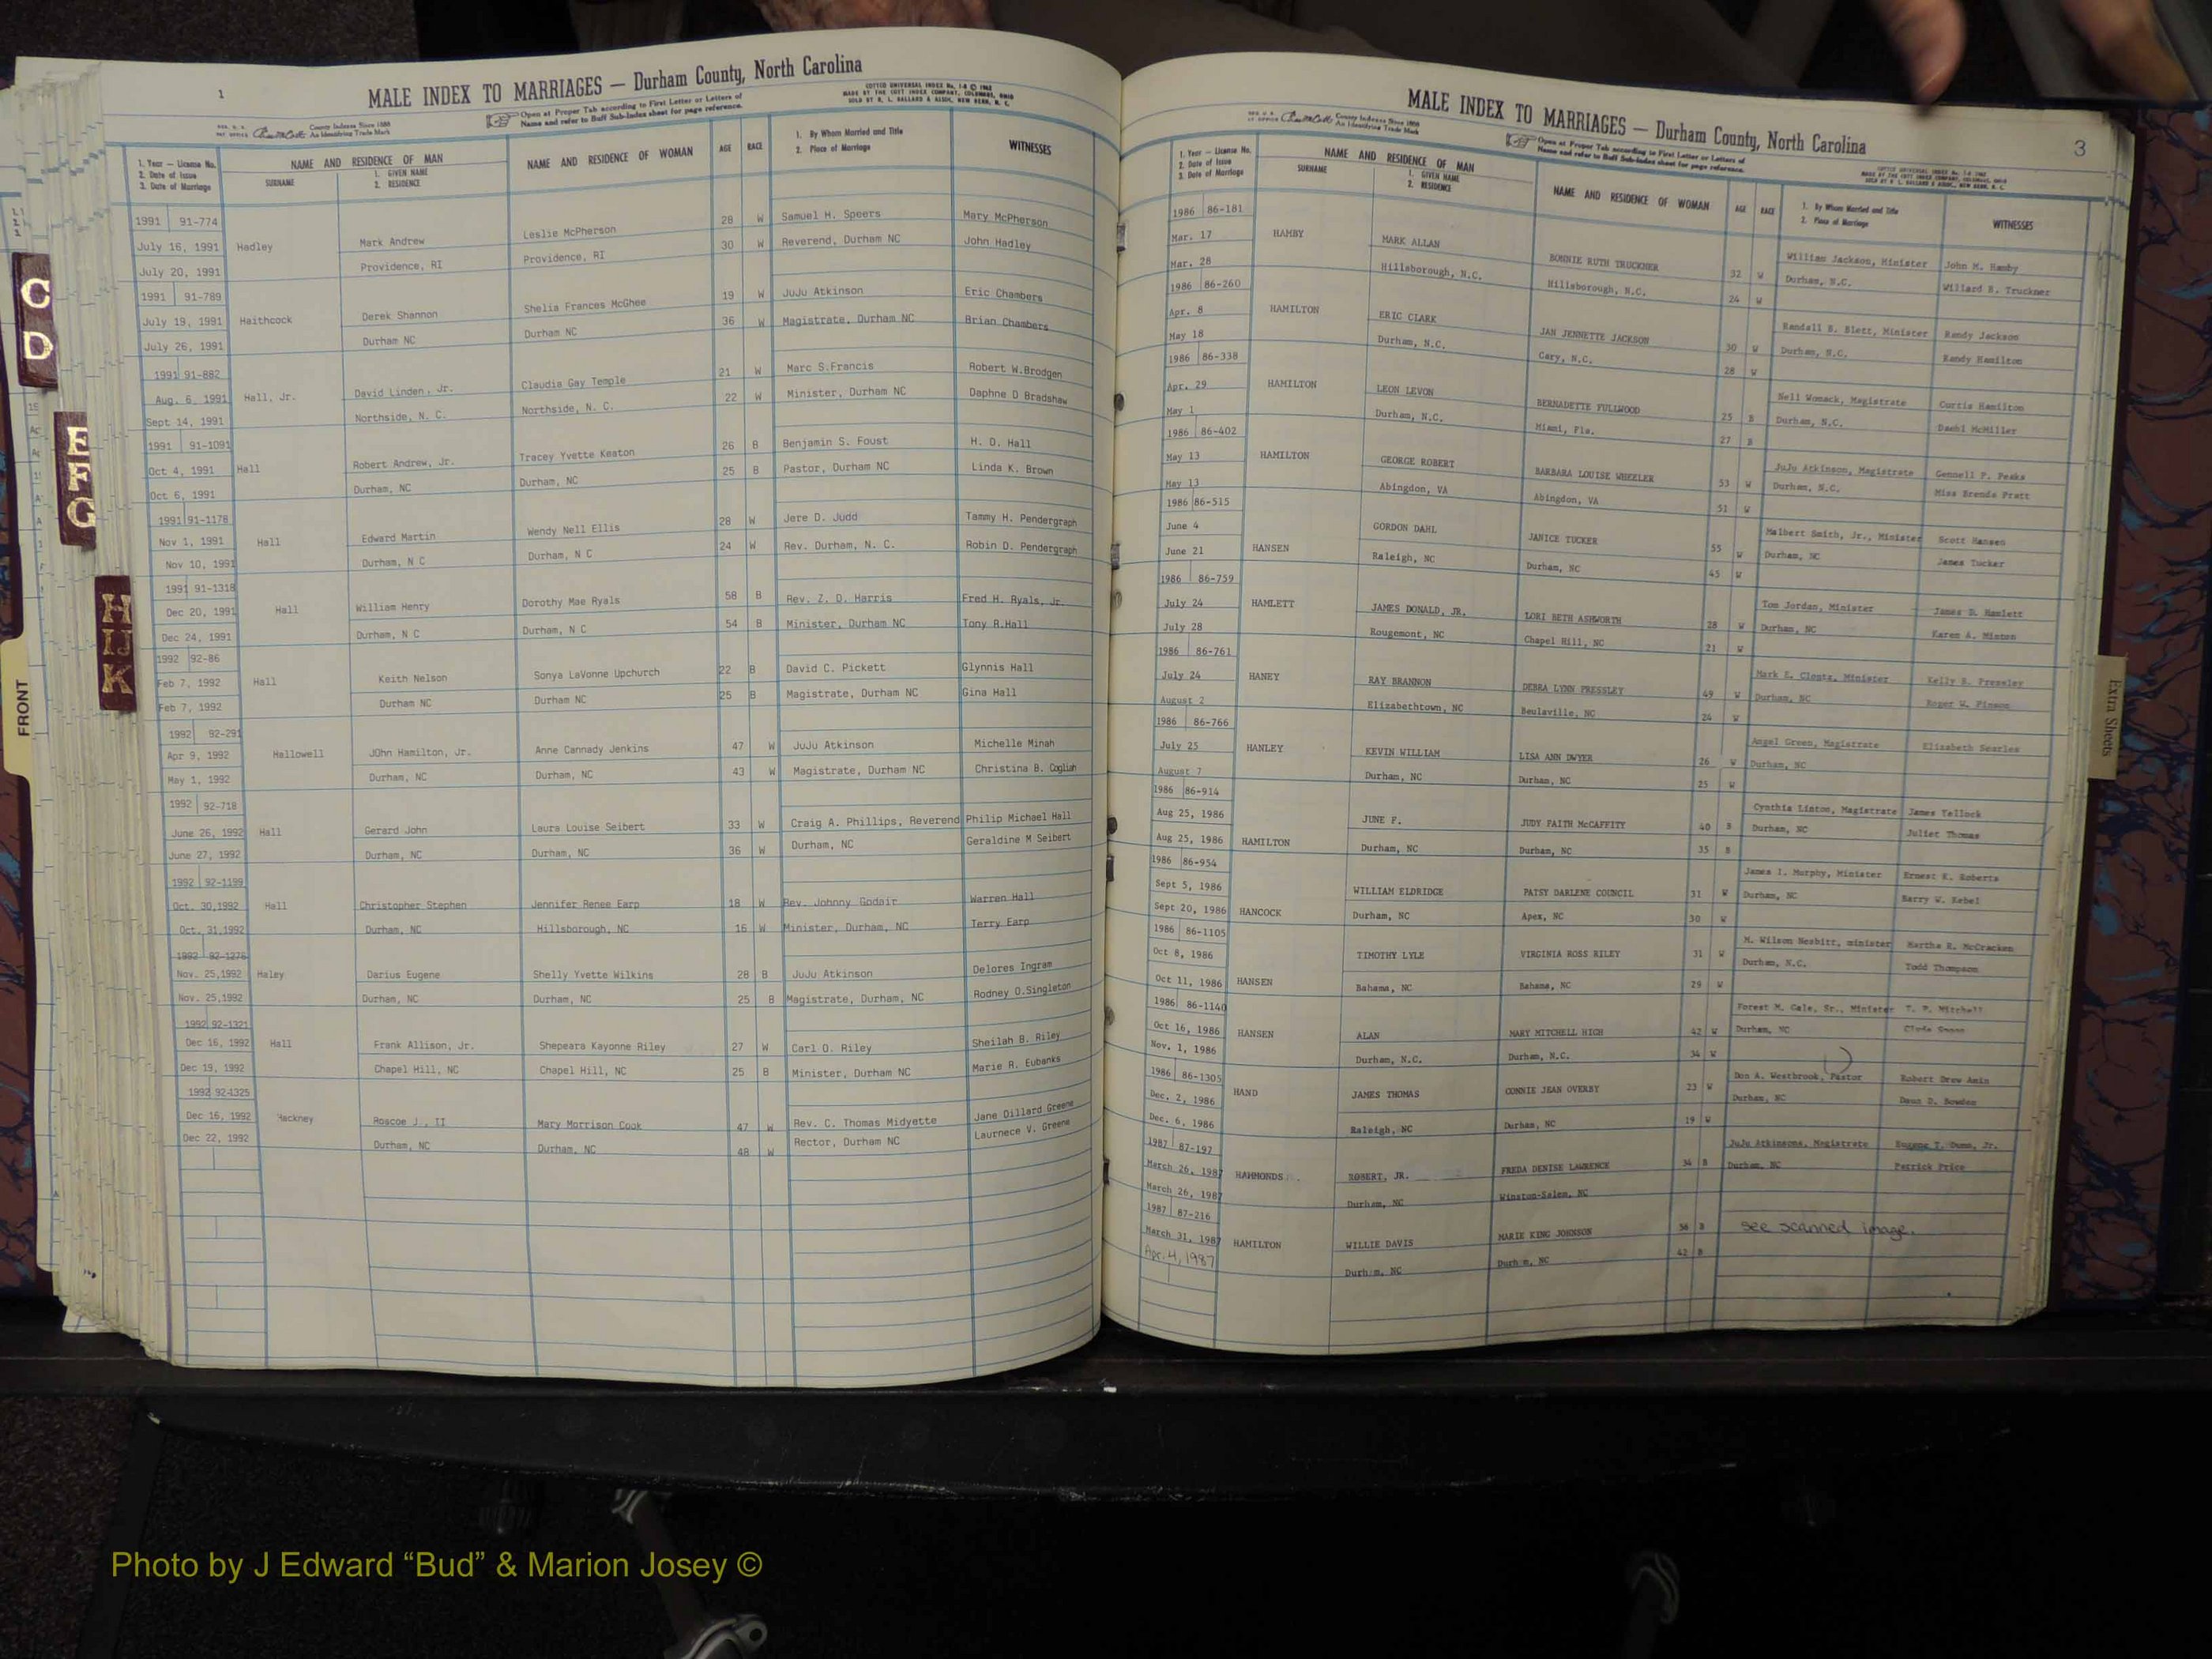 1
MALE INDEX TO MARRIAGES — Durham County, North Carolina
COTTCO UNIVERSAL INDEX No. 1-8 © 1962
MADE BY THE COTT INDEX COMPANY, COLUMBUS, OHIO
SOLD BY R. L. BALLARD & ASSOC., NEW BERN, N. C.
County Indexes Since 1888
An Identifying Trade Mark
Open at Proper Tab according to First Letter or Letters of
Name and refer to Buff Sub-Index sheet for page reference.
1. Year — License No.
2. Date of Issue
3. Date of Marriage
NAME AND RESIDENCE OF MAN
SURNAME
1. GIVEN NAME
2. RESIDENCE
NAME AND RESIDENCE OF WOMAN
AGE
RACE
1. By Whom Married and Title
2. Place of Marriage
WITNESSES
1991 91-774 28 W Samuel H. Speers Mary McPherson
July 16, 1991 Hadley Mark Andrew Leslie McPherson 30 W Reverend, Durham NC John Hadley
July 20, 1991 Providence, RI Providence, RI
1991 91-789 Shelia Frances McGhee 19 W JuJu Atkinson Eric Chambers
July 19, 1991 Haithcock Derek Shannon 36 W Magistrate, Durham NC Brian Chambers
July 26, 1991 Durham NC Durham NC
1991 91-882 21 W Marc S.Francis Robert W.Brodgen
Aug. 6, 1991 Hall, Jr. David Linden, Jr. Claudia Gay Temple 22 W Minister, Durham NC Daphne D Bradshaw
Sept 14, 1991 Northside, N. C. Northside, N. C.
1991 91-1091 Tracey Yvette Keaton 26 B Benjamin S. Foust H. D. Hall
Oct 4, 1991 Hall Robert Andrew, Jr. 25 B Pastor, Durham NC Linda K. Brown
Oct 6, 1991 Durham, NC Durham, NC
1991 91-1178 Wendy Nell Ellis 28 W Jere D. Judd Tammy H. Pendergraph
Nov 1, 1991 Hall Edward Martin 24 W Rev. Durham, N. C. Robin D. Pendergraph
Nov 10, 1991 Durham, N C Durham, N C
1991 91-1318 Dorothy Mae Ryals 58 B Rev. Z. D. Harris Fred H. Ryals, Jr.
Dec 20, 1991 Hall William Henry 54 B Minister, Durham NC Tony R.Hall
Dec 24, 1991 Durham, N C Durham, N C
1992 92-86 Sonya LaVonne Upchurch 22 B David C. Pickett Glynnis Hall
Feb 7, 1992 Hall Keith Nelson 25 B Magistrate, Durham NC Gina Hall
Feb 7, 1992 Durham NC Durham NC
1992 92-291 47 W JuJu Atkinson Michelle Minah
Apr 9, 1992 Hallowell JOhn Hamilton, Jr. Anne Cannady Jenkins 43 W Magistrate, Durham NC Christina B. Coglish
May 1, 1992 Durham, NC Durham, NC
1992 92-718 33 W Craig A. Phillips, Reverend Philip Michael Hall
June 26, 1992 Hall Gerard John Laura Louise Seibert 36 W Durham, NC Geraldine M Seibert
June 27, 1992 Durham, NC Durham, NC
1992 92-1199
Oct. 30,1992 Hall Christopher Stephen Jennifer Renee Earp 18 W Rev. Johnny Godair Warren Hall
Oct. 31,1992 Durham, NC Hillsborough, NC 16 W Minister, Durham, NC Terry Earp
1992 92-1276
Nov. 25,1992 Haley Darius Eugene Shelly Yvette Wilkins 28 B JuJu Atkinson Delores Ingram
Nov. 25,1992 Durham, NC Durham, NC 25 B Magistrate, Durham, NC Rodney O.Singleton
1992 92-1321
Dec 16, 1992 Hall Frank Allison, Jr. Shepeara Kayonne Riley 27 W Carl O. Riley Sheilah B. Riley
Dec 19, 1992 Chapel Hill, NC Chapel Hill, NC 25 B Minister, Durham NC Marie R. Eubanks
1992 92-1325
Dec 16, 1992 Hackney Roscoe J., II Mary Morrison Cook 47 W Rev. C. Thomas Midyette Jane Dillard Greene
Dec 22, 1992 Durham, NC Durham, NC 48 W Rector, Durham NC Laurnece V. Greene
C
D
E
F
G
H
IJ
K
FRONT
3
MALE INDEX TO MARRIAGES — Durham County, North Carolina
County Indexes Since 1888
An Identifying Trade Mark
Open at Proper Tab according to First Letter or Letters of
Name and refer to Buff Sub-Index sheet for page reference.
1. Year — License No.
2. Date of Issue
3. Date of Marriage
NAME AND RESIDENCE OF MAN
SURNAME
1. GIVEN NAME
2. RESIDENCE
NAME AND RESIDENCE OF WOMAN
AGE
RACE
1. By Whom Married and Title
2. Place of Marriage
WITNESSES
1986 86-181
Mar. 17 HAMBY MARK ALLAN BONNIE RUTH TRUCKNER 32 W William Jackson, Minister John M. Hamby
Mar. 28 Hillsborough, N.C. Hillsborough, N.C. 24 W Durham, N.C. Willard B. Truckner
1986 86-260
Apr. 8 HAMILTON ERIC CLARK JAN JENNETTE JACKSON 30 W Randall B. Blett, Minister Randy Jackson
May 18 Durham, N.C. Cary, N.C. 28 W Durham, N.C. Randy Hamilton
1986 86-338
Apr. 29 HAMILTON LEON LEVON BERNADETTE FULLWOOD 25 B Nell Womack, Magistrate Curtis Hamilton
May 1 Durham, N.C. Miami, Fla. 27 B Durham, N.C. McMiller
1986 86-402
May 13 HAMILTON GEORGE ROBERT BARBARA LOUISE WHEELER 53 W JuJu Atkinson, Magistrate Gennell P. Peaks
May 13 Abingdon, VA Abingdon, VA 51 W Durham, N.C. Miss Brenda Pratt
1986 86-515
June 4 GORDON DAHL JANICE TUCKER 55 W Malbert Smith, Jr., Minister Scott Hansen
June 21 HANSEN Raleigh, NC Durham, NC 45 W Durham, NC James Tucker
1986 86-759
July 24 HAMLETT JAMES DONALD, JR. LORI BETH ASHWORTH 28 W Tom Jordan, Minister James D. Hamlett
July 28 Rougemont, NC Chapel Hill, NC 21 W Durham, NC Karen A. Minton
1986 86-761
July 24 HANEY RAY BRANNON DEBRA LYNN PRESSLEY 49 W Mark E. Clontz, Minister Kelly B. Pressley
August 2 Elizabethtown, NC Beulaville, NC 24 W Durham, NC Roger W. Pinson
1986 86-766
July 25 HANLEY KEVIN WILLIAM LISA ANN DWYER 26 W Angel Green, Magistrate Elizabeth Searles
August 7 Durham, NC Durham, NC 25 W Durham, NC
1986 86-914
Aug 25, 1986 JUNE F. JUDY FAITH McCAFFITY 40 B Cynthia Linton, Magistrate James Tellock
Aug 25, 1986 HAMILTON Durham, NC Durham, NC 35 B Durham, NC Juliet Thomas
1986 86-954
Sept 5, 1986 WILLIAM ELDRIDGE PATSY DARLENE COUNCIL 31 W James I. Murphy, Minister Ernest K. Roberts
Sept 20, 1986 HANCOCK Durham, NC Apex, NC 30 W Durham, NC Barry W. Kebel
1986 86-1105
Oct 8, 1986 TIMOTHY LYLE VIRGINIA ROSS RILEY 31 W M. Wilson Nesbitt, minister Martha R. McCracken
Oct 11, 1986 HANSEN Bahama, NC Bahama, NC 29 W Durham, N.C. Todd Thompson
1986 86-1140
Oct 16, 1986 HANSEN ALAN MARY MITCHELL HIGH 42 W Forest M. Gale, Sr., Minister T. P. Mitchell
Nov. 1, 1986 Durham, N.C. Durham, N.C. 34 W Durham, NC Clyde
1986 86-1305
Dec. 2, 1986 HAND JAMES THOMAS CONNIE JEAN OVERBY 23 W Don A. Westbrook, Pastor Robert Drew Amin
Dec. 6, 1986 Raleigh, NC Durham, NC 19 W Durham, NC Daun D. Bowden
1987 87-197
March 26, 1987 HAMMONDS ROBERT, JR. FREDA DENISE LAWRENCE 34 B JuJu Atkinsons, Magistrate Eugene T. Dunn, Jr.
March 26, 1987 Durham, NC Winston-Salem, NC Durham, NC Perrick Price
1987 87-216
March 31, 1987 HAMILTON WILLIE DAVIS MARIE KING JOHNSON 56 B see scanned image.
Apr. 4, 1987 Durham, NC Durham, NC 42 B
Extra Sheets
Photo by J Edward “Bud” & Marion Josey ©